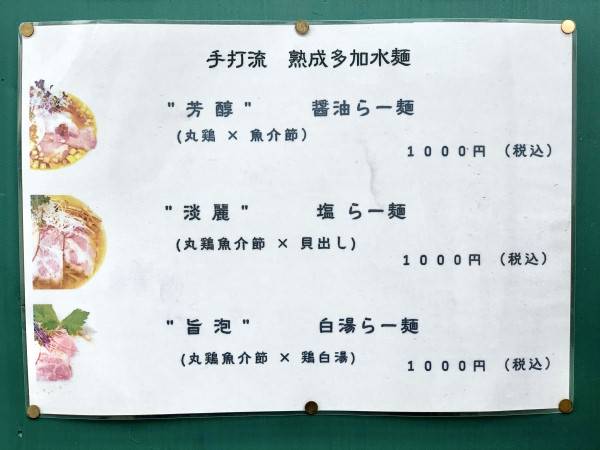 手打流　熟成多加水麺
"芳醇"　醤油らー麺
(丸鶏 × 魚介節)
1000円 (税込)
"淡麗"　塩らー麺
(丸鶏魚介節 × 貝出し)
1000円 (税込)
"旨泡"　白湯らー麺
(丸鶏魚介節 × 鶏白湯)
1000円 (税込)